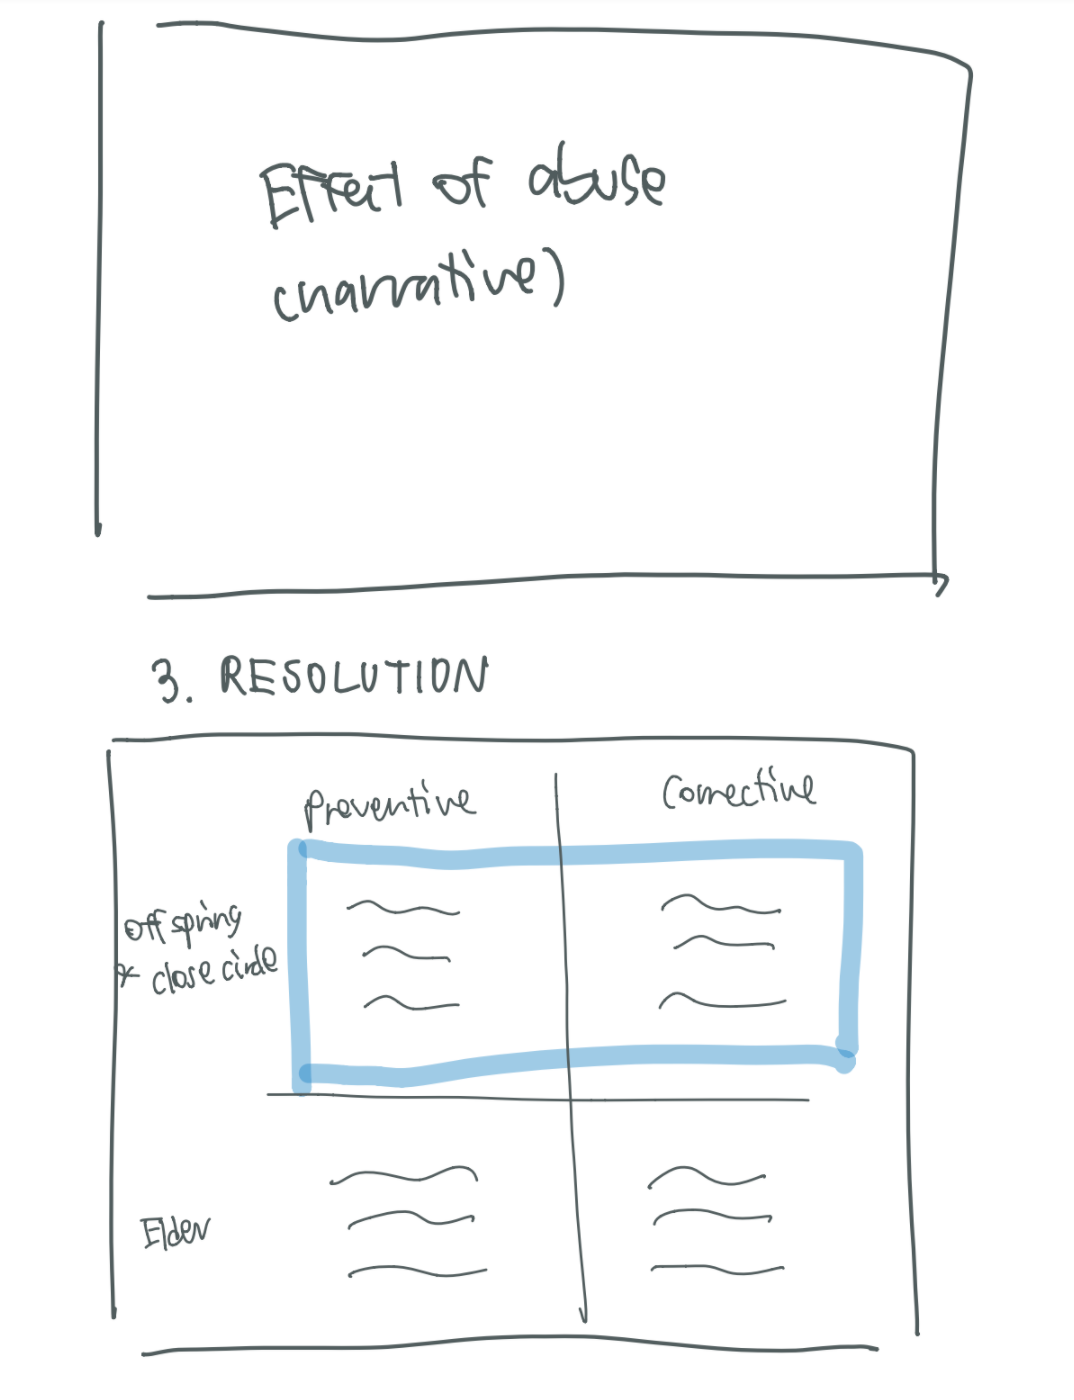 Effect of abuse
(narrative)
3. RESOLUTION
Preventive
Corrective
offspring
* close circle
Elder